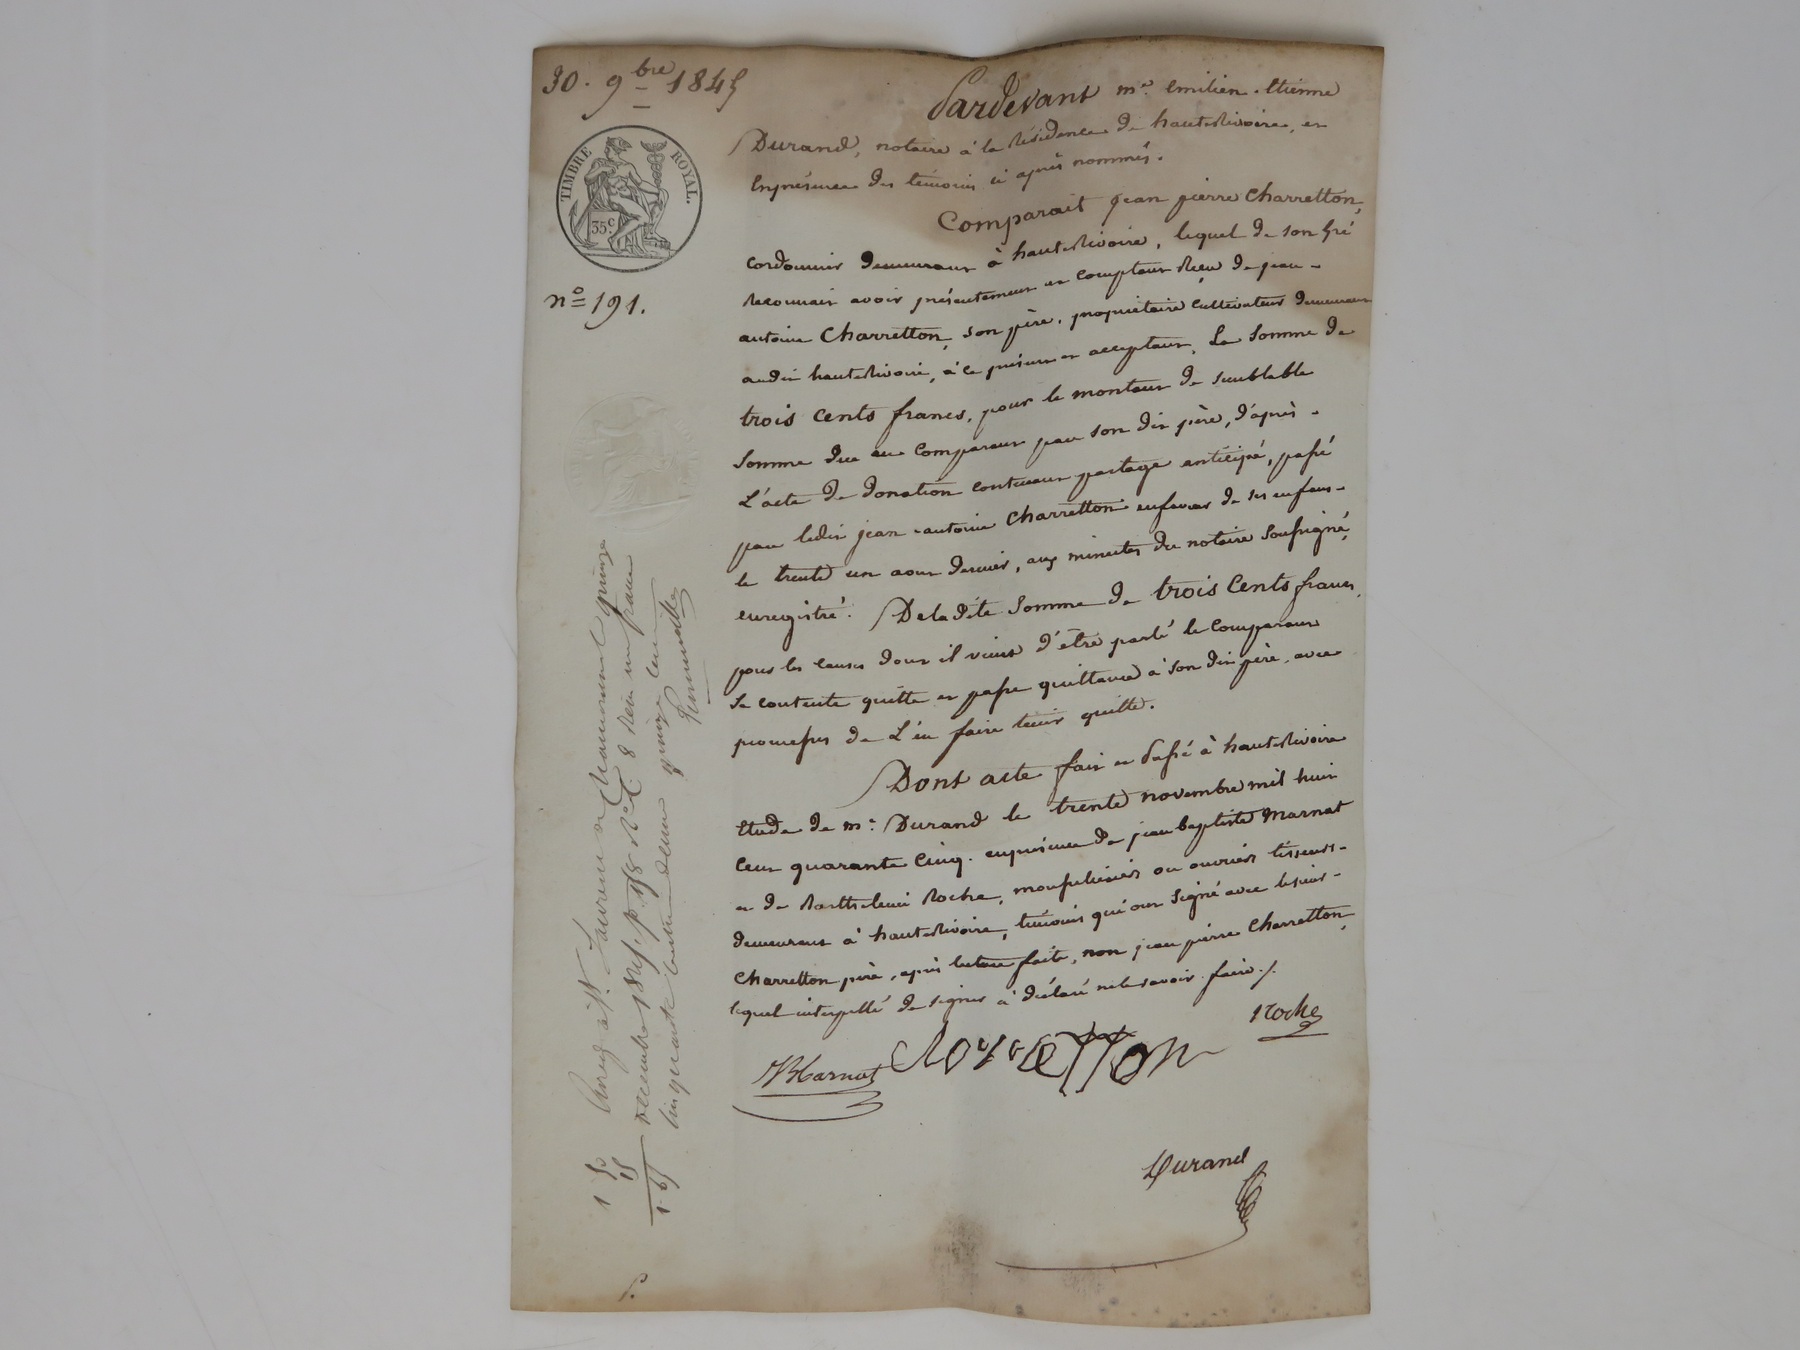 30. 9bre 1845
TIMBRE ROYAL.
35c.
no 191.
Pardevant me. emilien. Etienne
Durand, notaire à la Résidence de hauterivoire, et
Enprésence des témoins ci après nommés.
Comparait jean pierre Charretton,
cordonnier demeurant à hauterivoire, lequel de son gré
Reconnait avoir présentement et comptant Reçu de jean-
antoine Charretton, son père, propriétaire cultivateur demeurant
audit hauterivoire, à ce présent et acceptant, La Somme de
trois cents francs, pour le montant de semblable
Somme due au Comparant par son dit père, d'après-
L'acte de donation contenant partage anticipé, passé
par ledit jean-antoine Charretton enfaveur de ses enfans-
le trente un aout dernier, aux minutes du notaire Soussigné,
enregistré. De ladite Somme de trois Cents francs,
pour les causes dont il vient d'être parlé le Comparant
se contente quitte et passe quittance à son dit père, avec
promesses de L'en faire tenir quitte.
Dont acte fait et Passé à hauterivoire
Etude de me. Durand le trente novembre mil huit
Cent quarante Cinq. enprésence de jean baptiste Marnat
et de Barthelemi Roche, mousseliniers ou ouvriers tisseurs-
demeurant à hauterivoire, témoins qui ont Signé avec lesieur-
Charretton père, après lecture faite, non jean pierre Charretton,
lequel interpellé de signer a déclaré nele savoir faire./.
JBMarnat
Roche
Durand
Enreg à St. Laurent de Chamousset quinze
decembre 1845, f. 158 Ro C. 8 Reçu un franc
cinquante centimes decime quinze cent
1 50
15
1 65